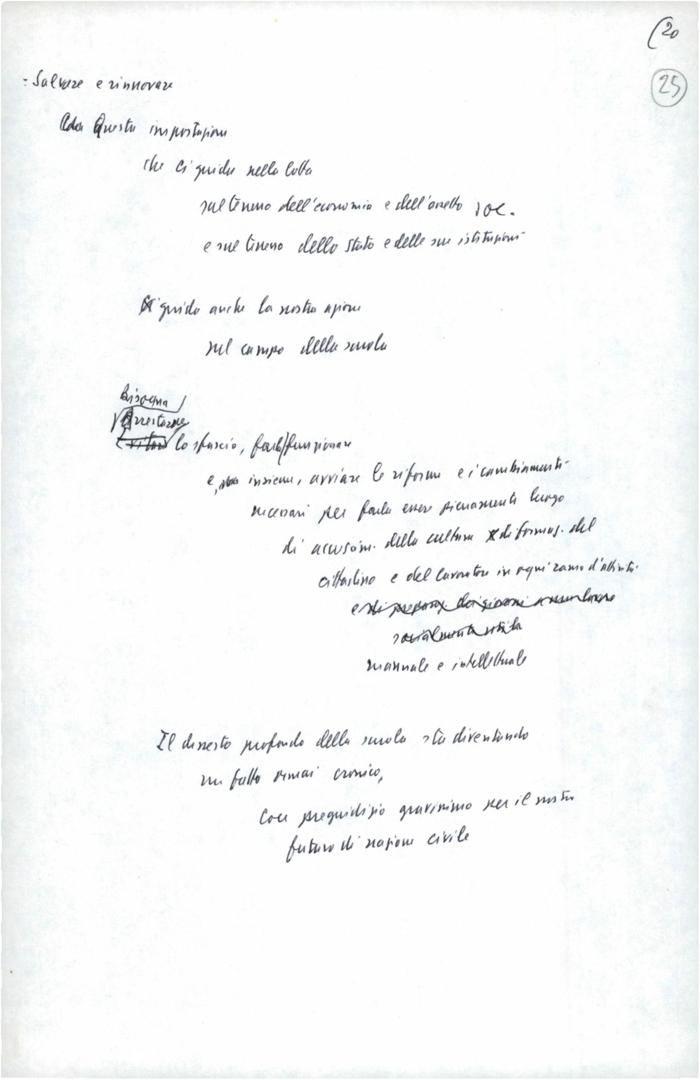 (20
25
- Salvare e rinnovare
Questa impostazione
che ci guida nella lotta
sul terreno dell'economia e dell'assetto soc.
e sul terreno dello Stato e delle sue istituzioni
guida anche la nostra azione
nel campo della scuola
Bisogna
Arrestarne
lo sfascio, farla funzionare
e, insieme, avviare le riforme e i cambiamenti
necessari per farla essere pienamente luogo
di acquisiz. della cultura e di formaz. del
cittadino e del lavoratore in ogni ramo d'attività
e di preparaz. dei giovani a un lavoro
socialmente utile
manuale e intellettuale
Il dissesto profondo della scuola sta diventando
un fatto ormai cronico,
con pregiudizio gravissimo per il nostro
futuro di nazione civile